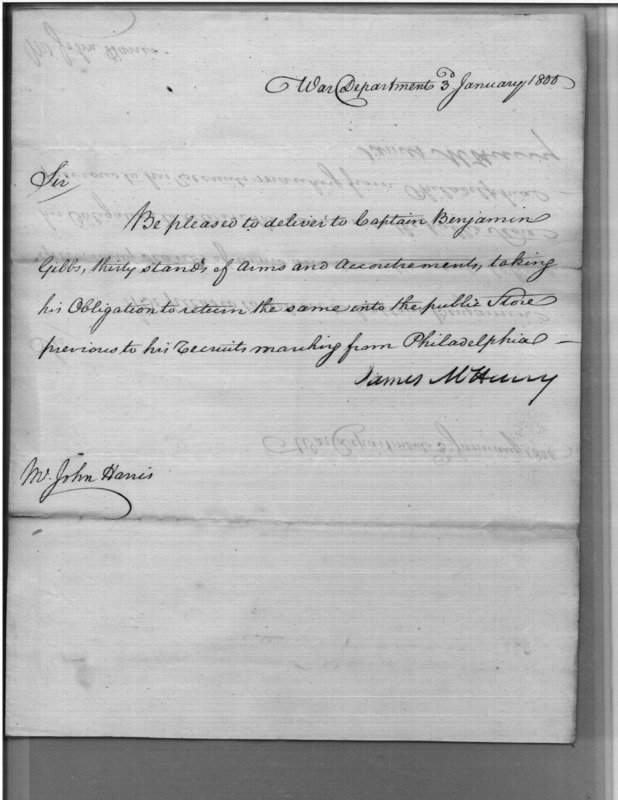 War Department 3d January 1800
Sir
Be pleased to deliver to Captain Benjamin
Gibbs, thirty stands of Arms and Accoutrements, taking
his Obligation to return the same into the public Store
previous to his Recruits marching from Philadelphia —
James McHenry
Mr. John Harris